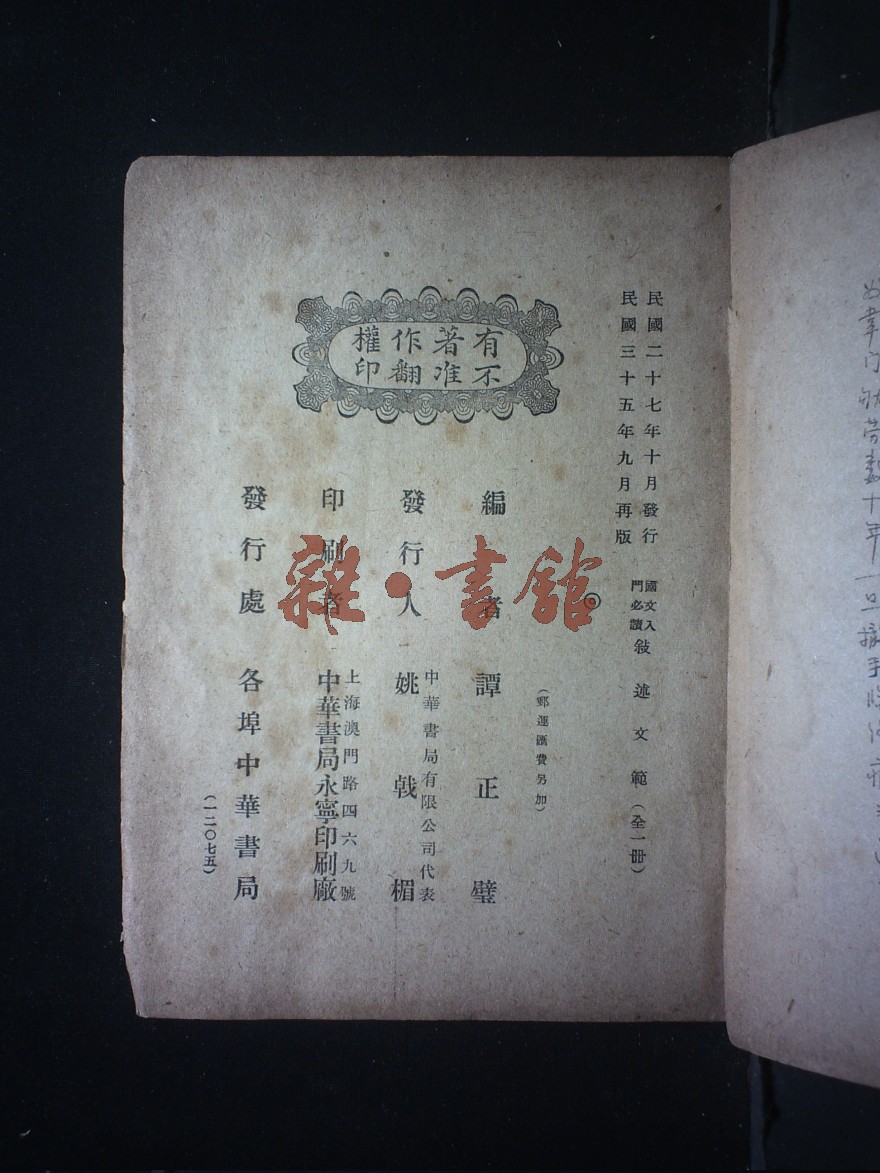 民國二十七年十月發行
民國三十五年九月再版
國文入門必讀 敍述文範（全一冊）
（郵運匯費另加）
有著作權
不准翻印
編者 譚正璧
發行人 中華書局有限公司代表 姚戟楣
印刷者 上海澳門路四六九號 中華書局永寧印刷廠
發行處 各埠中華書局
（一二〇七五）
雜·書館